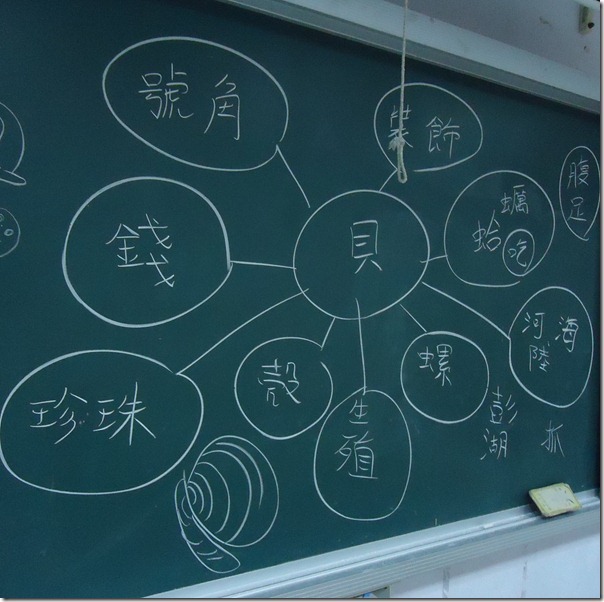 號角
裝飾
腹足
錢
貝
蠣
蛤
吃
河海
陸
殼
螺
珍珠
生殖
彭湖
抓